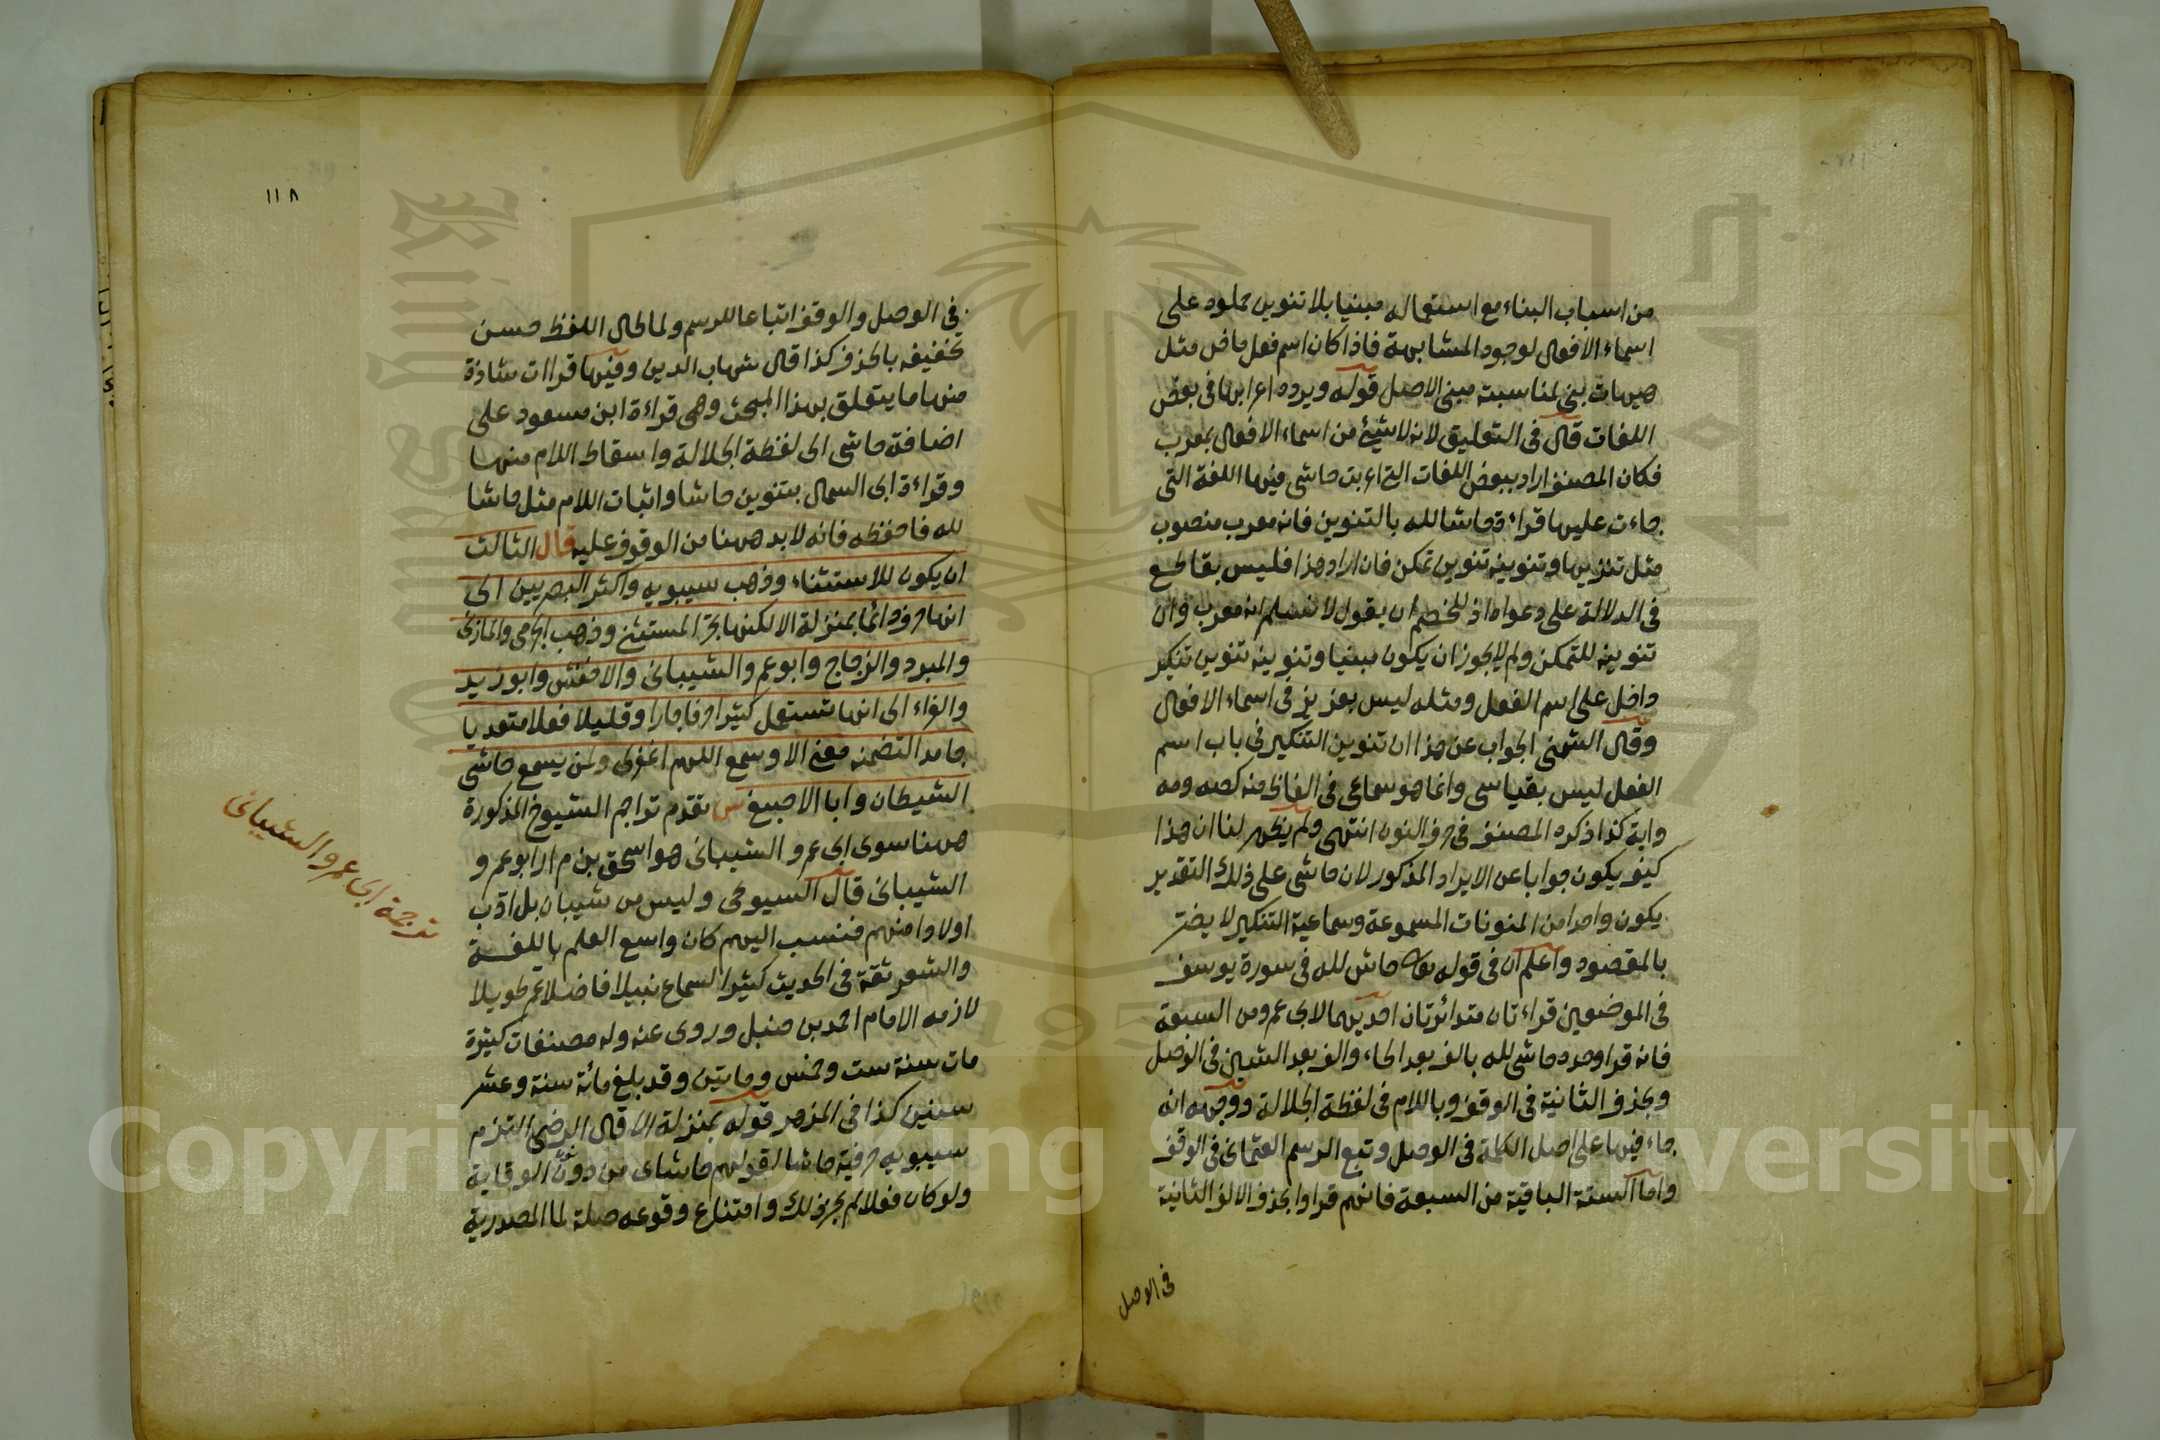 من اسباب البناء مع استعماله مبنيا بلا تنوين حملوه على
اسماء الافعال لوجود المشابهة فاذا كان اسم فعل ماض مثل
هيهات بنى لمناسبته مبنى الاصل قوله ويرده اعرابها فى بعض
اللغات قال فى التعليق لانه لا شئ من اسماء الافعال بمعرب
فكان المصنف اراد ببعض اللغات التى اعربت حاشى فيها اللغة التى
جاءت عليها قراءة حاشا لله بالتنوين فانه معرب منصوب
مثل تنزيها وتنوينه تنوين تمكن فان اراد هذا فليس بقاطع
فى الدلالة على دعواه اذ للخصم ان يقول لا نسلم انه معرب وان
تنوينه للتمكن ولم لا يجوز ان يكون مبنيا وتنوينه تنوين تنكير
داخل على اسم الفعل ومثله ليس بعزيز فى اسماء الافعال
وقال الشمنى الجواب عن هذا ان تنوين التنكير فى باب اسم
الفعل ليس بقياسى وانما هو سماعى فى الفاظ منه كصه ومه
وايه كذا ذكره المصنف فى حرف النون انتهى ولم يظهر لنا ان هذا
كيف يكون جوابا عن الايراد المذكور لان حاشى على ذلك التقدير
يكون واحدا من المنونات المسموعة وسماعية التنكير لا يضر
بالمقصود واعلم ان فى قوله تعالى حاش لله فى سورة يوسف
فى الموضعين قراءتان متواترتان احديهما لابى عمرو من السبعة
فانه قرا وحده حاشى لله بالف بعد الحاء والف بعد الشين فى الوصل
وبحذف الثانية فى الوقف وباللام فى لفظة الجلالة ووجهه انه
جاء فيها على اصل الكلمة فى الوصل وتبع الرسم العثمانى فى الوقف
واما الستة الباقية من السبعة فانهم قراوا بحذف الالف الثانية
فى الوصل
١١٨
فى الوصل والوقف اتباعا للرسم ولما طال اللفظ حسن
تخفيفه بالحذف كذا قال شهاب الدين وفيها قراات شاذة
منها ما يتعلق بهذا المبحث وهى قراءة ابن مسعود على
اضافة حاشى الى لفظة الجلالة واسقاط اللام منها
وقراءة ابى السمال بتنوين حاشا واثبات اللام مثل حاشا
لله فاحفظه فانه لا بد ههنا من الوقوف عليه قال الثالث
ان يكون للاستثناء وذهب سيبويه واكثر البصريين الى
انها حرف دائما بمنزلة الا لكنها تجر المستثنى وذهب الجرمى والمازنى
والمبرد والزجاج وابو عمرو الشيبانى والاخفش وابو زيد
والفراء الى انها تستعمل كثيرا حرفا جارا وقليلا فعلا متعديا
جامدا لتضمنه معنى الا وسمع اللهم اغفرلى ولمن يسمع حاشى
الشيطان وابا الاصبغ ش تقدم تراجم الشيوخ المذكورة
ههنا سوى ابى عمرو الشيبانى هو اسحق بن مرار ابو عمرو
الشيبانى قال السيوطى وليس من شيبان بل ادب
اولادا منهم فنسب اليهم كان واسع العلم باللغة
والشعر ثقة فى الحديث كثير السماع نبيلا فاضلا عمر طويلا
لازمه الامام احمد بن حنبل وروى عنه وله مصنفات كثيرة
مات سنة ست وخمس ومايتين وقد بلغ مائة سنة وعشر
سنين كذا فى المزهر قوله بمنزلة الا قال الرضى التزم
سيبويه حرفية حاشا لقولهم حاشاى من دون نون الوقاية
ولو كان فعلا لم يجز ذلك وامتناع وقوعه صلة لما المصدرية
ترجمة ابى عمرو الشيبانى
King Saud University
1957
Copyright © King Saud University